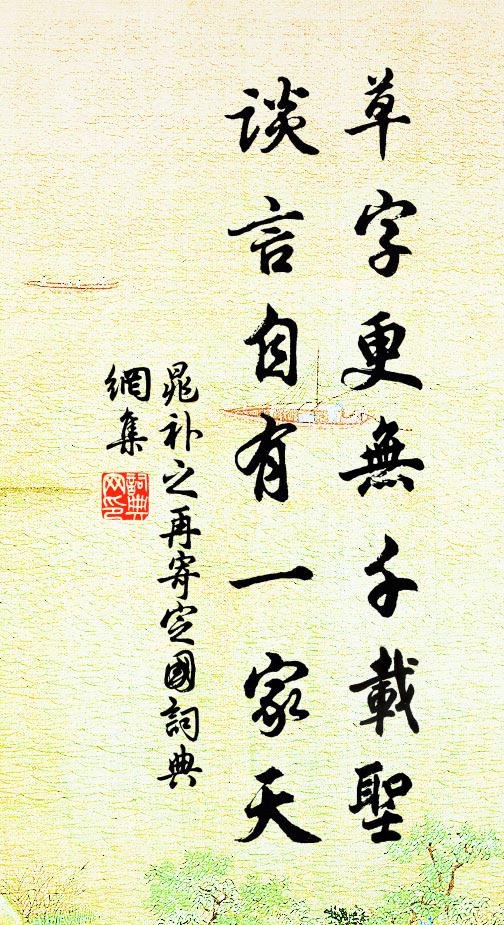 草字更無千載聖
談言自有一家天
晁補之再寄定國詞典
網集
詞典
网印